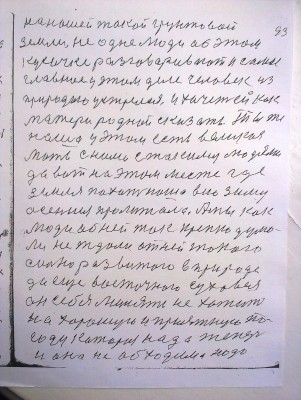 на нашей такой грунтовой
93
земли, не одне люди об этом
кусочке разговаривают и самое
главное у этом деле человек из
природою устрелся, и хочется как
матери родной сказать. Ты же
наша у этом есть великая
мать с нами стасими людями
да вот на этом месте где
земля пахотная она зиму
осенния пролижала. А мы как
люди об ней так крепко думо-
ли, не ждали от ней такого
сильно развитого в природе
да еще восточного суховея
он себя менять не хотит
на хорошую и приятную по-
году которая надо жить
и она необходима надо